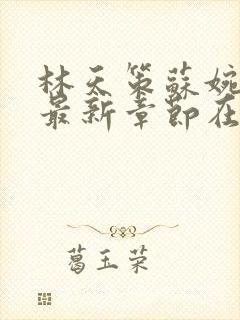 林天策蘇婉
最新章節在
葛玉荣